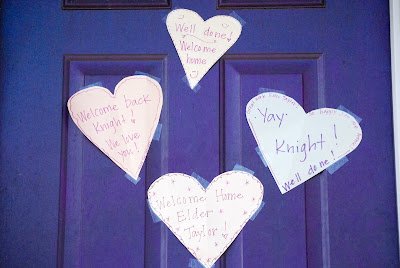 Well done!
Welcome
home
Welcome back
Knight!
We love
you!
Yay
Knight!
Well done!
Welcome Home
Elder
Taylor!